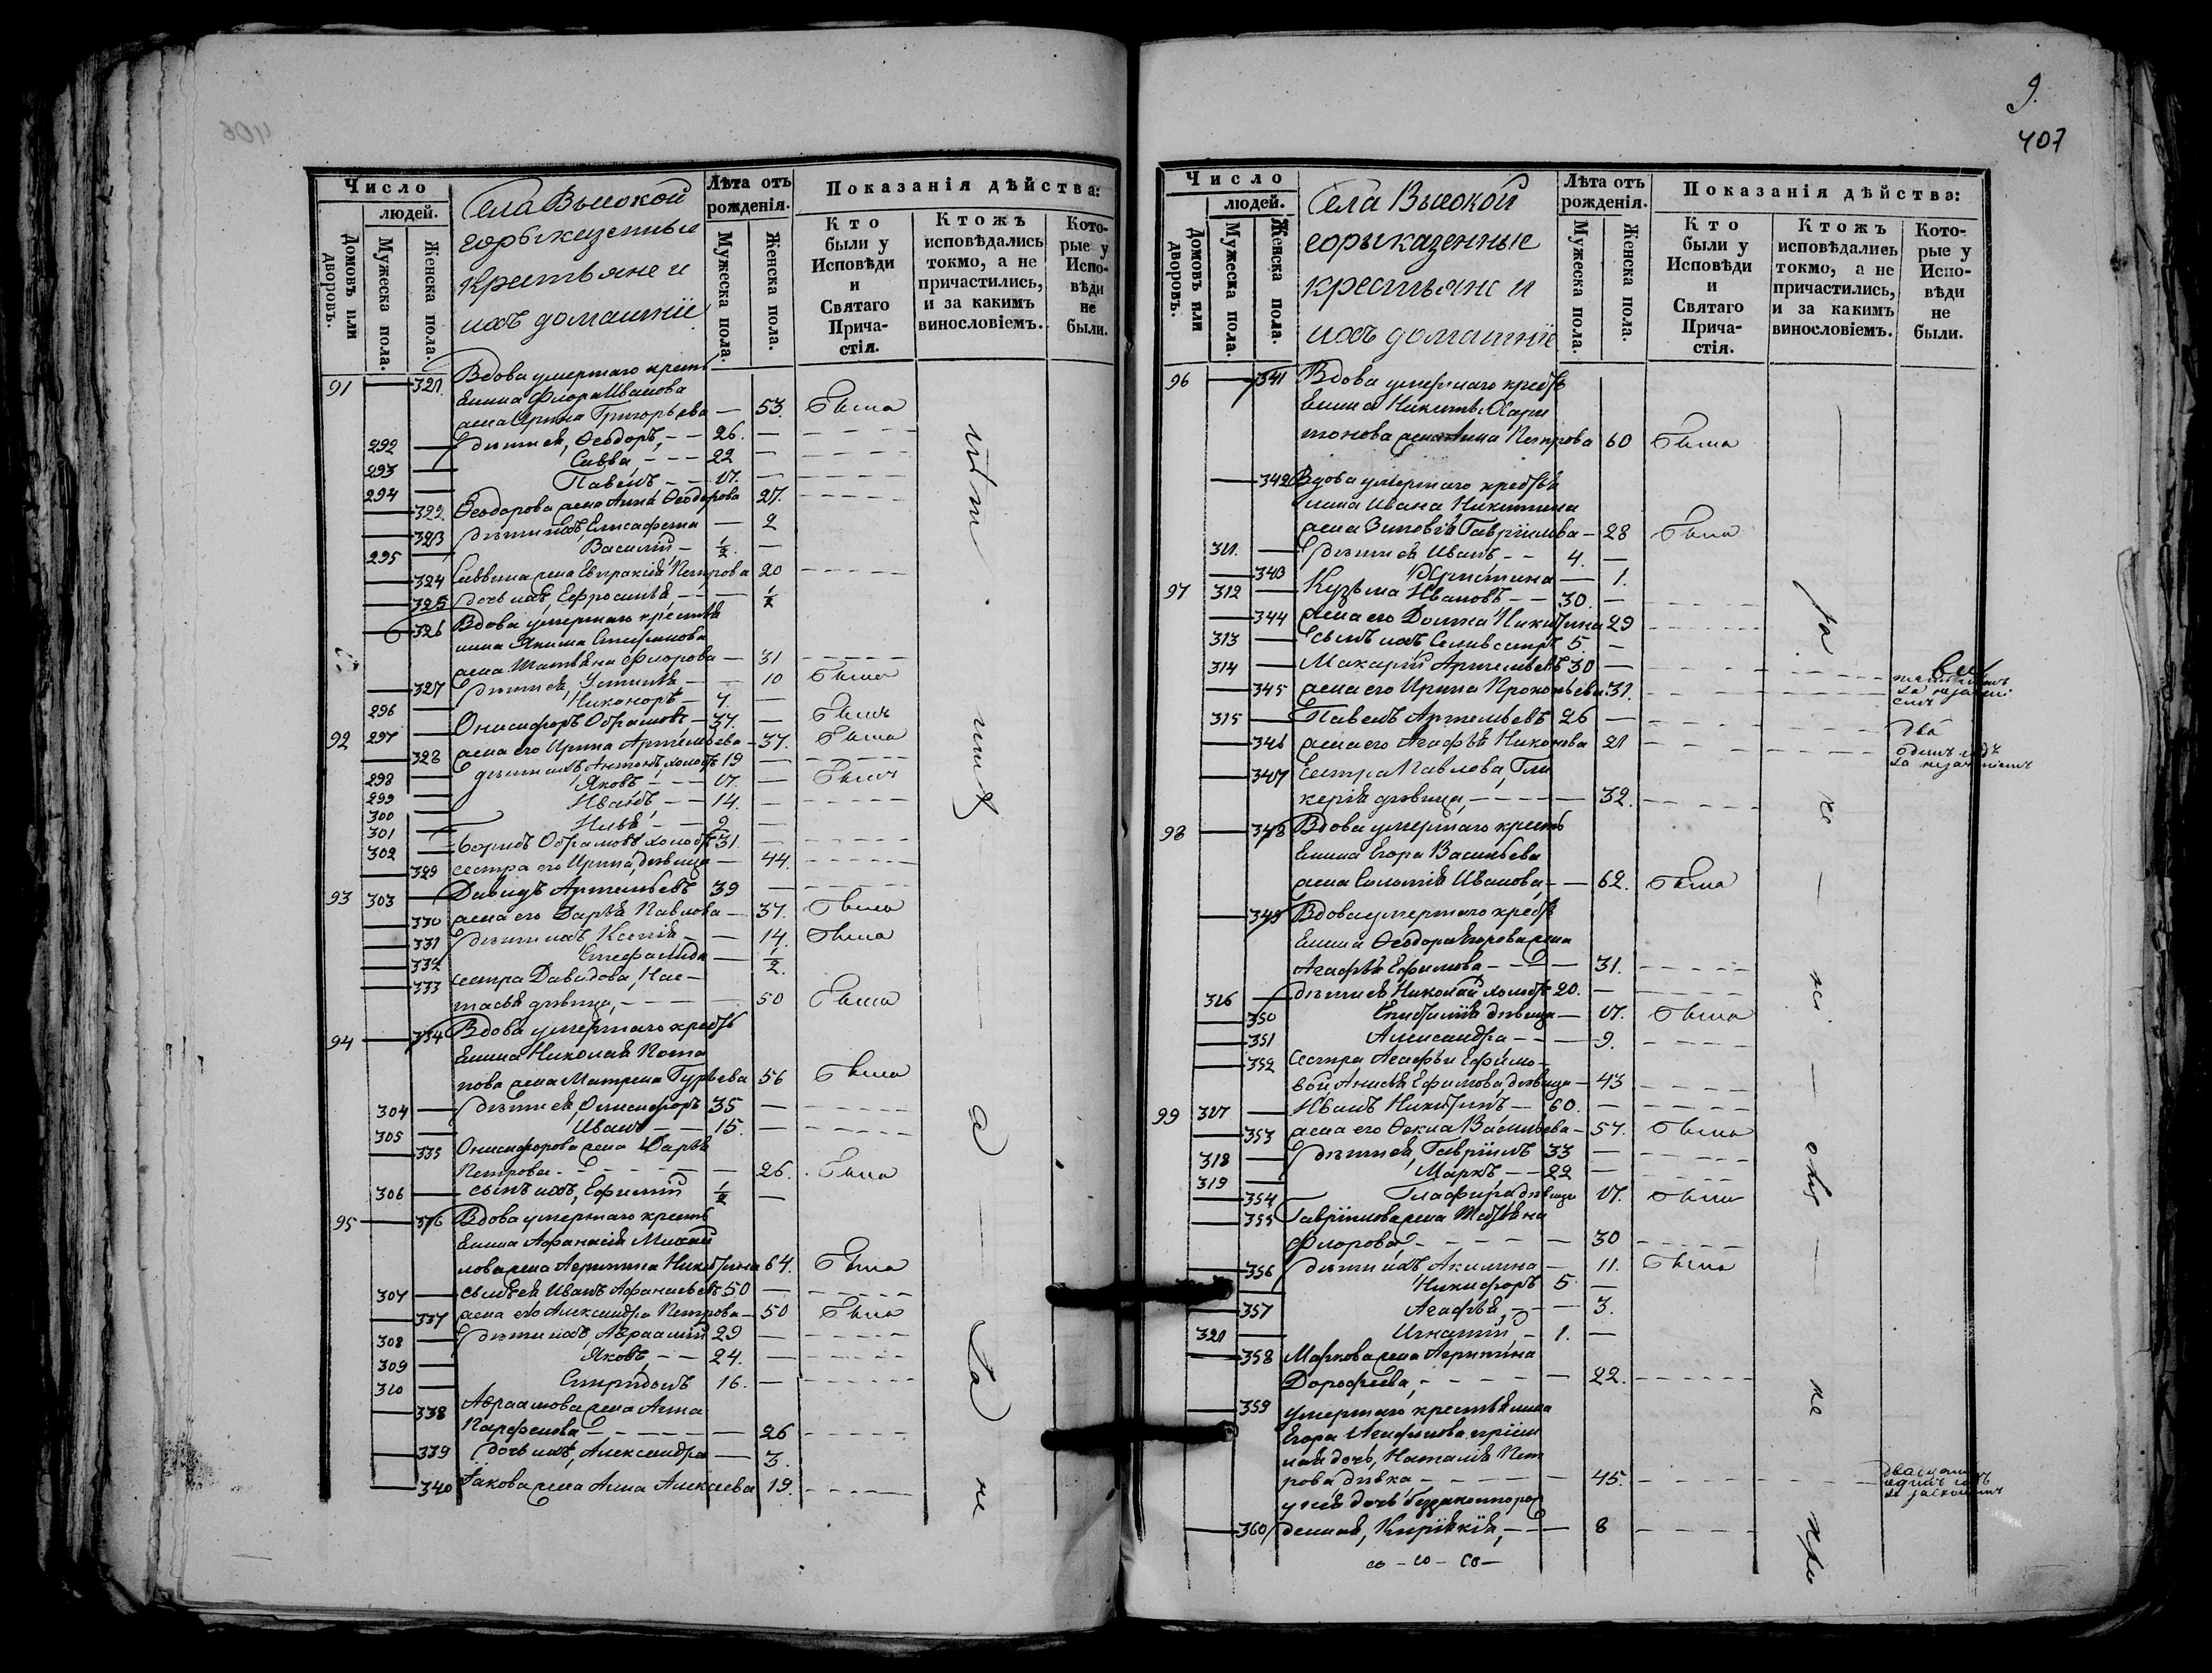 406
Число
людей.
Домовъ или дворовъ.
Мужеска пола.
Женска пола.
Села Высокой
горы казенные
крестьяне и
ихъ домашніе
Лѣта отъ рожденія.
Мужеска пола.
Женска пола.
Показанія дѣйства:
Кто были у Исповѣди и Святаго Причастія.
Ктожъ исповѣдались токмо, а не причастились, и за какимъ винословіемъ.
Которые у Исповѣди не были.
91 321 Вдова умершаго кресть
янина Флора Иванова
жена Ирина Григорьева — 53. Была
292 дѣти ея, Ѳеодоръ, 26.
293 Савва, 22
294 Павелъ 17.
322 Ѳеодорова жена Анна Ѳеодорова 27.
323 дѣти ихъ, Елисафета — 2
295 Василій — 1/2
324 Саввина жена Евпраксія Петрова 20
325 дочь ихъ, Ефросинья 1/2
326 Вдова умершаго крестья
нина Якима Стефанова
жена Татьяна Флорова — 31
327 дѣти ея, Устинья 10 Была
296 Никаноръ 7.
92 297 Онисифоръ Абрамовъ 37. Былъ
328 жена его Ирина Артемьева 37. Была
298 дѣти ихъ Антонъ, холостъ 19
299 Яковъ 17. Былъ
300 Иванъ 14.
301 Илья 9
302 Борисъ Абрамовъ холостъ 31.
329 сестра его Ирина, дѣвица 44.
93 303 Давидъ Артемьевъ 39
330 жена его Дарья Павлова 37. Была
331 дѣти ихъ Ксенія 14. Была
332 Стефанида 1/2.
333 сестра Давидова, Нас-
тасья дѣвица, 50 Была
94 334 Вдова умершаго кресть
янина Николая Пота
пова жена Матрена Гурьева 56 Была
304 дѣти ея, Онисифоръ 35
305 Иванъ 15.
335 Онисифорова жена Дарья
Петрова 26. Была
306 сынъ ихъ, Ефимій 1/2
95 336 Вдова умершаго кресть
янина Афанасія Михай
лова жена Агрипина Никитина 64. Была
307 сынъ ея Иванъ Афанасьевъ 50
337 жена его Александра Петрова 50 Была
308 дѣти ихъ, Авраамій 29
309 Яковъ, 24.
310 Спиридонъ 16.
338 Авраамова жена Анна
Парфенова 26
339 дочь ихъ, Александра 3.
340 Іакова жена Анна Алексеева 19.
9.
407
Число
людей.
Домовъ или дворовъ.
Мужеска пола.
Женска пола.
Села Высокой
горы казенные
крестьяне и
ихъ домашніе
Лѣта отъ рожденія.
Мужеска пола.
Женска пола.
Показанія дѣйства:
Кто были у Исповѣди и Святаго Причастія.
Ктожъ исповѣдались токмо, а не причастились, и за какимъ винословіемъ.
Которые у Исповѣди не были.
96 341 Вдова умершаго кресть
янина Никиты Хари
тонова жена Анна Петрова 60 Была
342 Вдова умершаго крестья
нина Ивана Никитина
жена Зиновія Гавріилова 28 Была
311. дѣти ея Иванъ 4.
343 Христина 1.
97 312 Кузьма Ивановъ 30.
344 жена его Домна Никитина 29
313 сынъ ихъ, Селивестръ 5.
314 Макарій Артемьевъ 30
345 жена его Ирина Прокопьева 31.
315 Павелъ Артемьевъ 26 два
346 жена его Агафья Никонова 21 одинъ годъ
347 Сестра Павлова, Гли
керія дѣвица, 32.
98 348 Вдова умершаго кресть
янина Егора Васильева
жена Соломія Иванова 62. Была
349 Вдова умершаго кресть
янина Ѳеодора Егорова жена
Агафья Ефимова 31.
316 дѣти ея Николай холостъ 20.
350 Епистимія дѣвица 17. Была
351 Александра 9.
352 Сестра Агафьи Ефимо-
вой Анисья Ефимова, дѣвица 43
99 317 Иванъ Никитинъ 60.
353 жена его Ѳекла Васильева 57. Была
318 дѣти ея, Гавріилъ 33
319 Маркъ 22
354 Глафира дѣвица 17. Была
355 Гавріилова жена Татьяна
Флорова, 30
356 дѣти ихъ Акилина 11. Была
Никифоръ 5
357 Агафья, 3.
320 Игнатій, 1.
358 Маркова жена Агрипина
Дорофеева, 22.
359 Умершаго крестьянина
Егора Агафонова пріем
ная дочь, Наталія Пет
рова дѣвка 45.
у нея дочь беззаконнорож
360 денная, Киріякія, 8